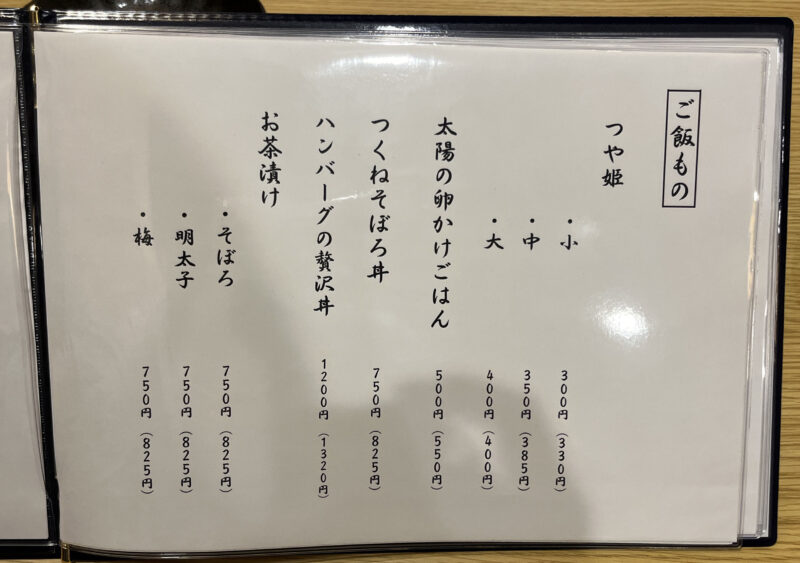 ご飯もの
つや姫
・小 300円(330円)
・中 350円(385円)
・大 400円(400円)
太陽の卵かけごはん 500円(550円)
つくねそぼろ丼 750円(825円)
ハンバーグの贅沢丼 1200円(1320円)
お茶漬け
・そぼろ 750円(825円)
・明太子 750円(825円)
・梅 750円(825円)